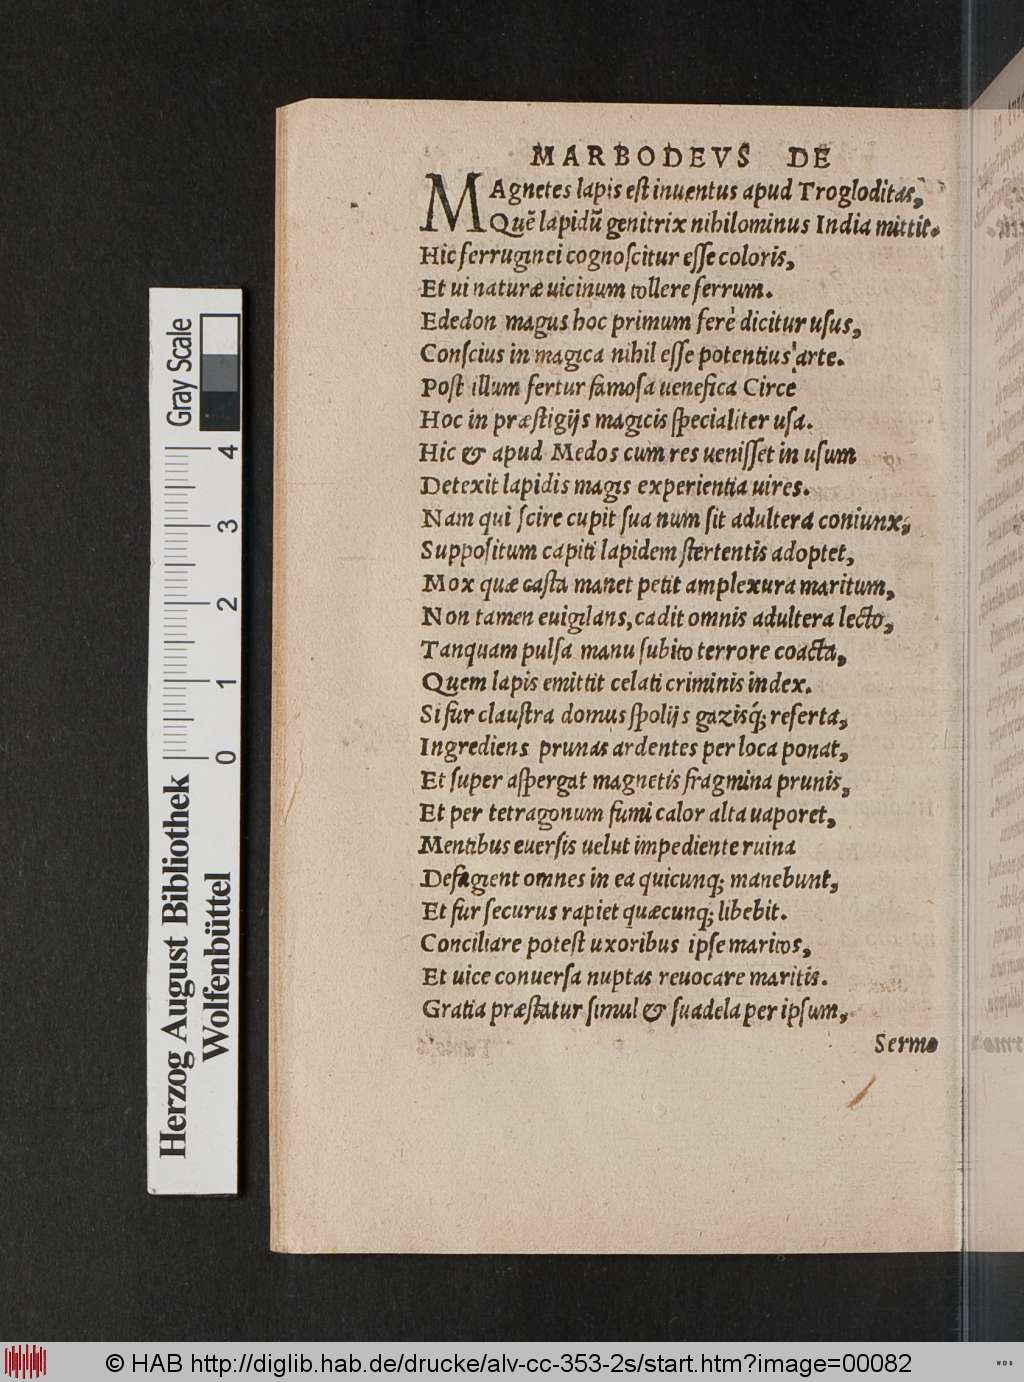 MARBODEVS DE
MAgnetes lapis eſt inuentus apud Trogloditas,
Quẽ lapidũ genitrix nihilominus India mittit.
Hic ferruginei cognoſcitur eſſe coloris,
Et ui naturæ uicinum tollere ferrum.
Ededon magus hoc primum ferè dicitur uſus,
Conſcius in magica nihil eſſe potentius arte.
Poſt illum fertur famoſa uenefica Circe
Hoc in præſtigijs magicis ſpecialiter uſa.
Hic & apud Medos cum res ueniſſet in uſum
Detexit lapidis magis experientia uires.
Nam qui ſcire cupit ſua num ſit adultera coniunx,
Suppoſitum capiti lapidem ſtertentis adoptet,
Mox quæ caſta manet petit amplexura maritum,
Non tamen euigilans, cadit omnis adultera lecto,
Tanquam pulſa manu ſubito terrore coacta,
Quem lapis emittit celati criminis index.
Si fur clauſtra domus ſpolijs gazisq́; referta,
Ingrediens prunas ardentes per loca ponat,
Et ſuper aſpergat magnetis fragmina prunis,
Et per tetragonum fumi calor alta uaporet,
Mentibus euerſis uelut impediente ruina
Defugient omnes in ea quicunq; manebunt,
Et fur ſecurus rapiet quæcunq; libebit.
Conciliare poteſt uxoribus ipſe maritos,
Et uice conuerſa nuptas reuocare maritis.
Gratia præſtatur ſimul & ſuadela per ipſum,
Sermo
Herzog August Bibliothek
Wolfenbüttel
0 1 2 3 4
Gray Scale
© HAB http://diglib.hab.de/drucke/alv-cc-353-2s/start.htm?image=00082